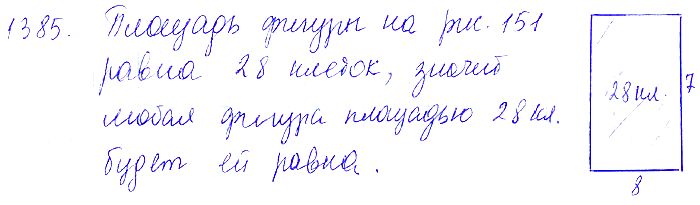 1385. Площадь фигуры на рис. 151
равна 28 клеток, значит
любая фигура площадью 28 кл.
будет ей равна.
28 кл.
7
8